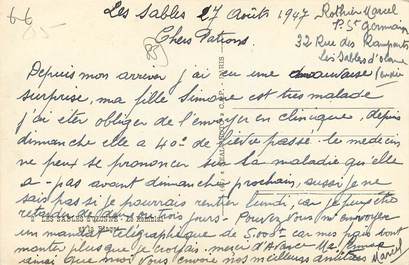 66
85
Les Sables 27 Août 1947
Rothier Marcel
P. St Germain
32 Rue des Remparts
Les Sables d'olonne
Vendée
Chers Patrons.
Depuis mon arriver j'ai eu une mauvaise
surprise, ma fille Simone est très malade
j'ai éter obliger de l'envoyer en cliniques, depuis
dimanche elle a 40° de fièvre passé. le medicin
ne peux se prononcer sur la maladie qu'elle
a - pas avant dimanche prochain, aussi je ne
sais pas si je pourrais rentrer lundi, car je puis être
retarder de 1 ou deux jours - Pouvez Vous m'envoyer
un mandat télégraphique de 5.000f car mes frais vont
monter plus que je croyais. merci d'Avance Ma femme
ainsi que moi Vous envoie nos meilleurs amitiées
Marcel